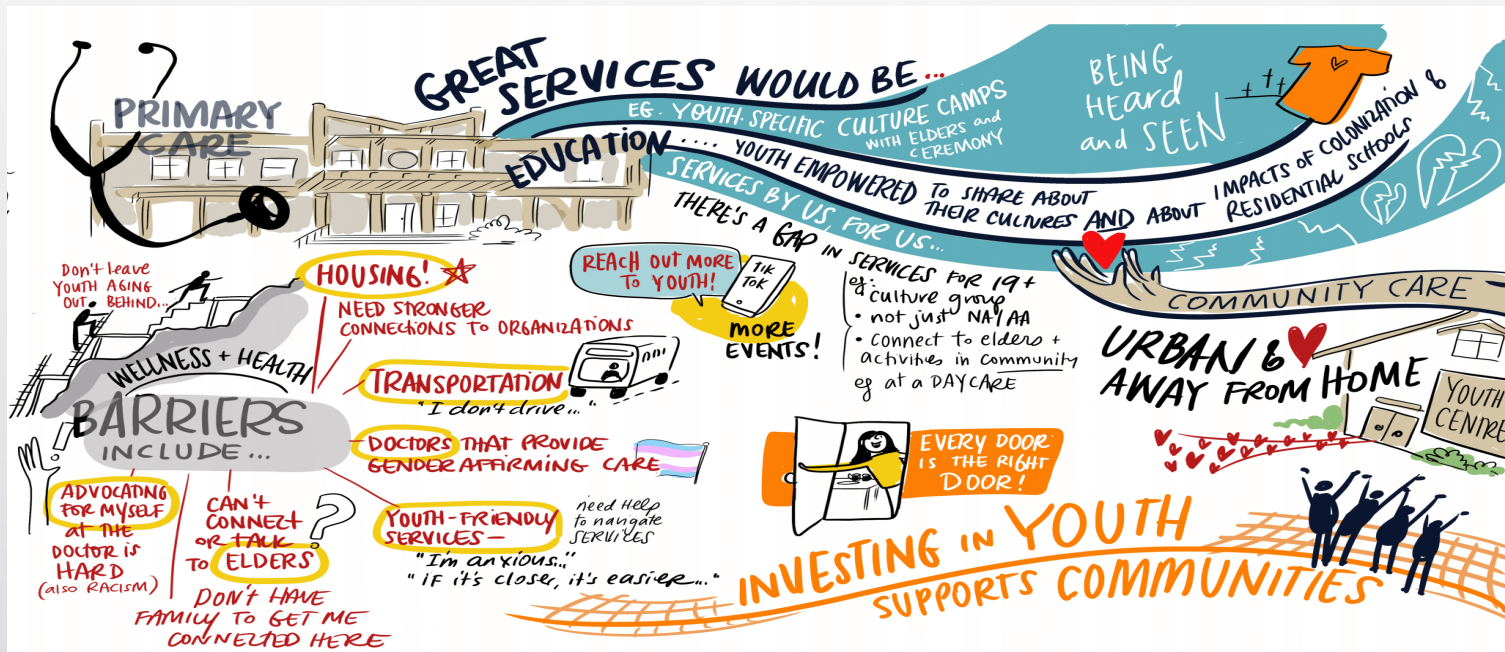 PRIMARY
CARE
GREAT
SERVICES WOULD BE...
EG. YOUTH-SPECIFIC CULTURE CAMPS
WITH ELDERS and
CEREMONY
BEING
HEard
and SEEN
EDUCATION.... YOUTH EMPOWERED TO SHARE ABOUT
THEIR CULTURES AND ABOUT
IMPACTS OF COLONIZATION &
RESIDENTIAL SCHOOLS
SERVICES BY US, FOR US...
THERE'S A GAP IN SERVICES FOR 19+
eg:
• culture group
• not just NA/AA
• connect to elders +
activities in community
eg at a DAYCARE
REACH OUT MORE
TO YOUTH!
TIK
TOK
MORE
EVENTS!
COMMUNITY CARE
URBAN &
AWAY FROM HOME
YOUTH
CENTRE
Don't leave
YOUTH AGING
OUT BEHIND...
WELLNESS + HEALTH
BARRIERS
INCLUDE...
HOUSING!
NEED STRONGER
CONNECTIONS TO ORGANIZATIONS
TRANSPORTATION
"I don't drive..."
DOCTORS THAT PROVIDE
GENDER AFFIRMING CARE
YOUTH-FRIENDLY
SERVICES-
need Help
to navigate
SERVICES
"I'm anxious..."
"iF it's closer, it's easier..."
ADVOCATING
FOR MYSELF
at THE
DOCTOR is
HARD
(also RACISM)
CAN'T
CONNECT
OR TALK
TO ELDERS
?
DON'T HAVE
FAMILY TO GET ME
CONNECTED HERE
EVERY DOOR
IS THE RIGHT
DOOR!
INVESTING IN YOUTH
SUPPORTS COMMUNITIES